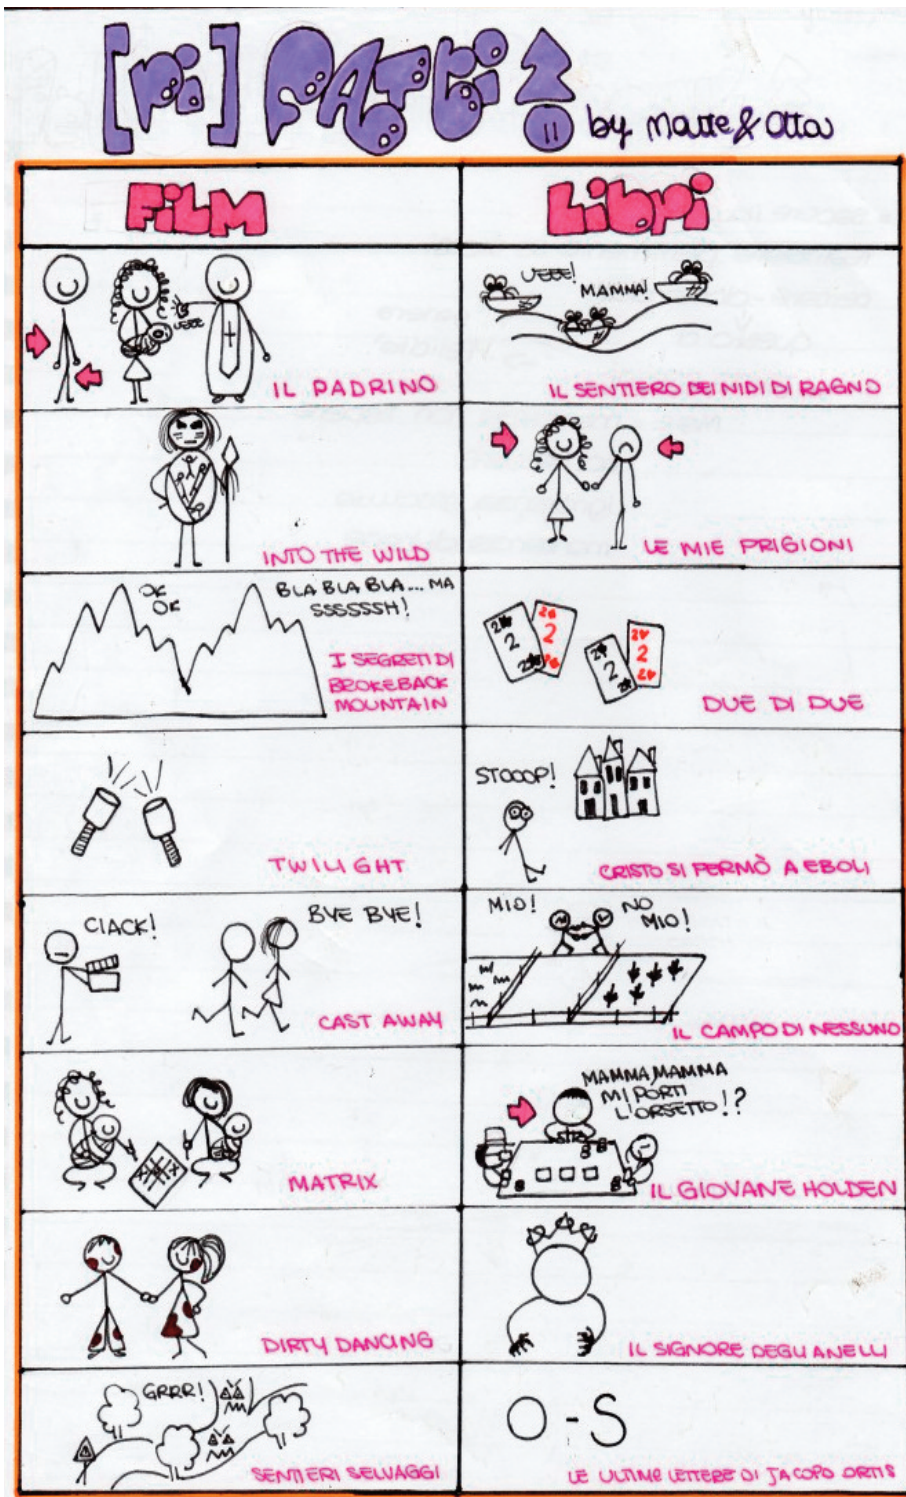 [Ri] FATTI by Matte & Otta
FILM
Libri
UEEE
IL PADRINO
UEEE! MAMMA!
IL SENTIERO DEI NIDI DI RAGNO
INTO THE WILD
LE MIE PRIGIONI
OK
OK
BLA BLA BLA... MA
SSSSSSH!
I SEGRETI DI
BROKEBACK
MOUNTAIN
2 2 2
2 2 2
2 2 2
2 2 2
DUE DI DUE
TWILIGHT
STOOOP!
CRISTO SI FERMÒ A EBOLI
CIACK!
BYE BYE!
CAST AWAY
MIO!
NO
MIO!
IL CAMPO DI NESSUNO
MATRIX
MAMMA, MAMMA
MI PORTI
L'ORSETTO!?
IL GIOVANE HOLDEN
DIRTY DANCING
IL SIGNORE DEGLI ANELLI
GRRR!
SENTIERI SELVAGGI
O - S
LE ULTIME LETTERE DI JACOPO ORTIS